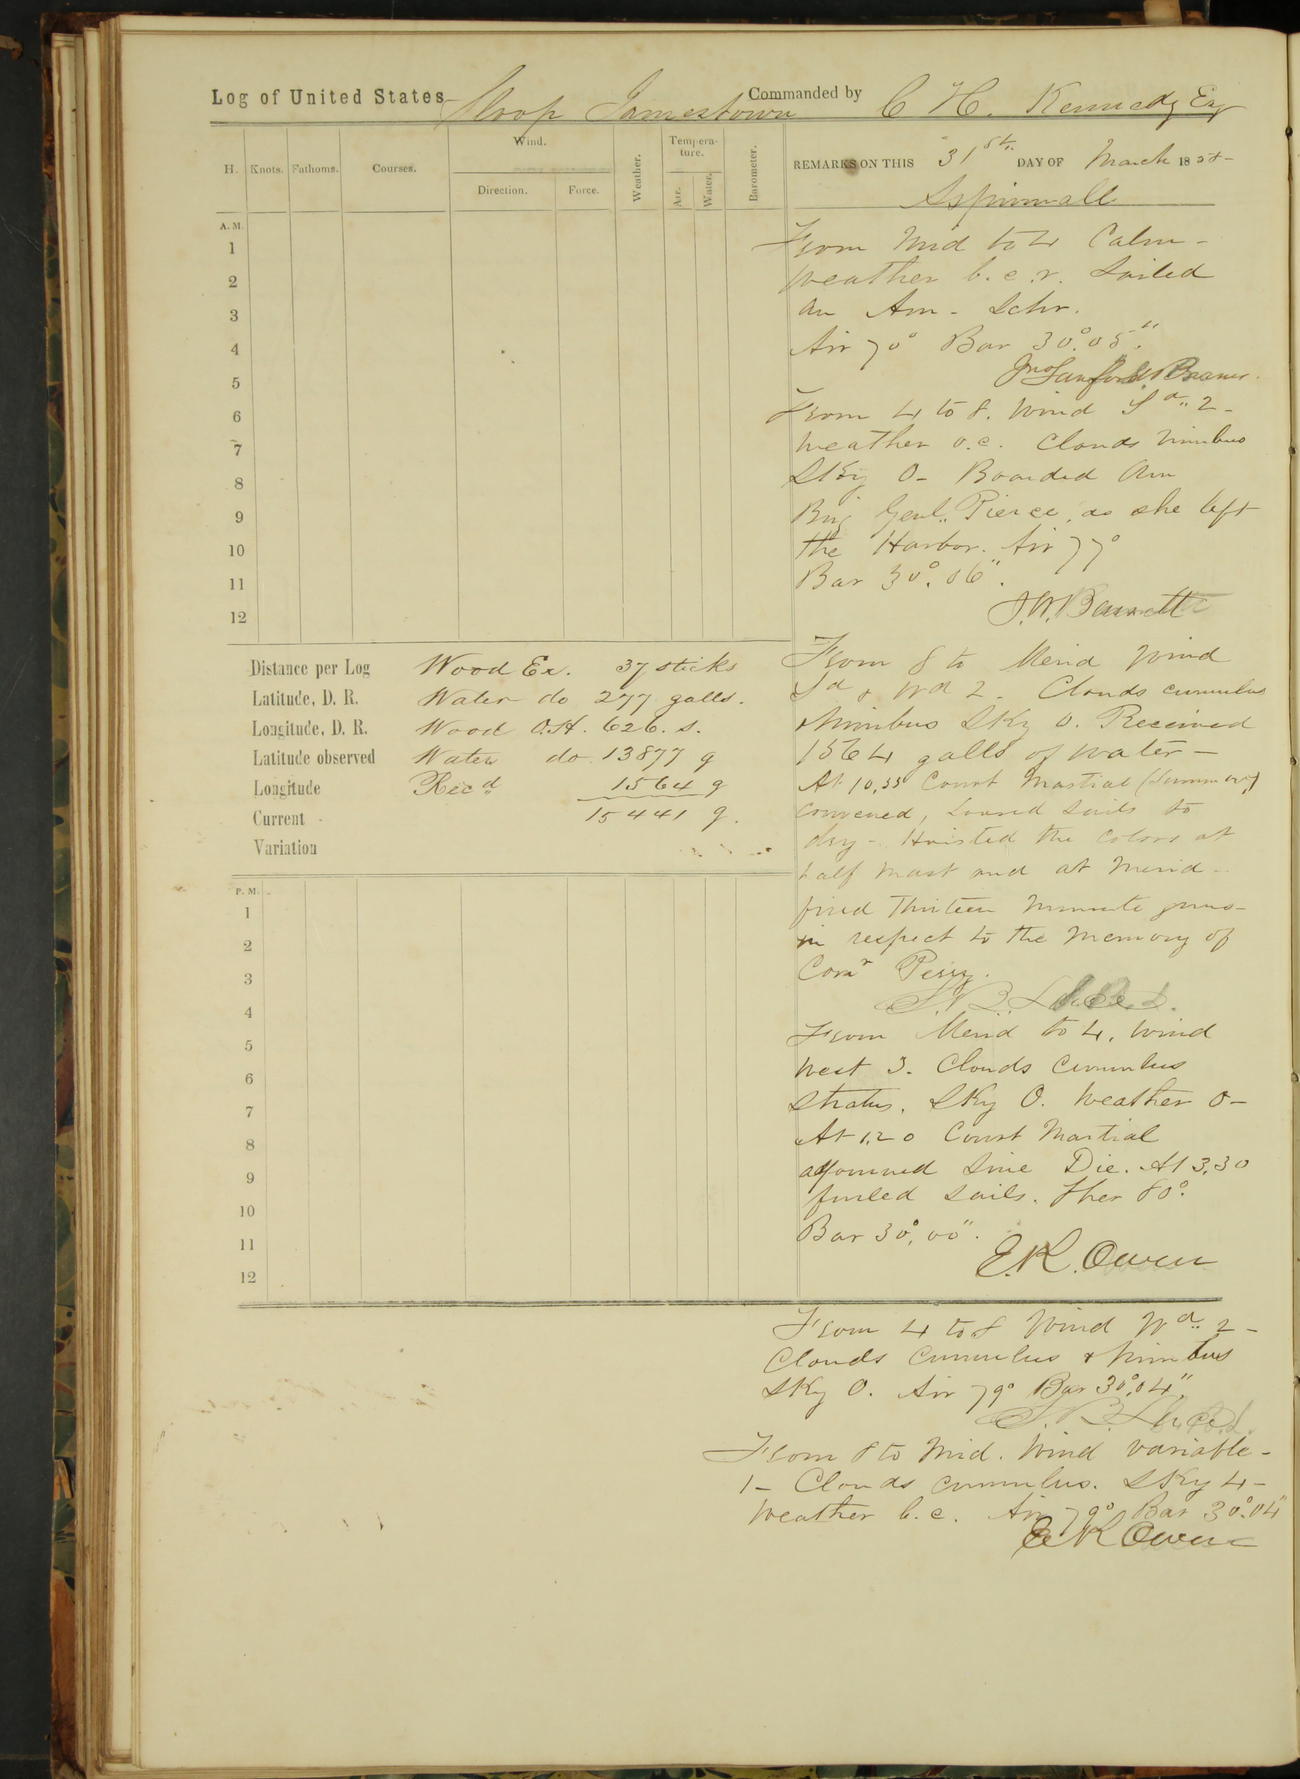 Log of United States Sloop Jamestown Commanded by C H. Kennedy Esq
H. Knots. Fathoms. Courses. Wind. Direction. Force. Weather. Tempera-ture. Air. Water. Barometer.
REMARKS ON THIS 31st. DAY OF March 1858-
Aspinwall
A. M.
1
2
3
4
5
6
7
8
9
10
11
12
From Mid to 4 Calm-
Weather b.c.r. Sailed
an Am- Schr.
Air 70° Bar 30°.05"
Jno Sanford Barnes.
From 4 to 8. Wind Sd. 2-
Weather o.c. Clouds Nimbus
Sky 0- Boarded Am
Brig Genl. Pierce, as she left
the Harbor. Air 77°
Bar 30°.06".
J.W. Bennett
From 8 to Merid Wind
Sd & Wd 2. Clouds cumulus
& Nimbus Sky 0. Received
1564 galls of water-
At 10,35 Court Martial (Summary)
convened, Loosed Sails to
dry- Hoisted the Colors at
half Mast and at Merid-
fired Thirteen Minute guns-
in respect to the Memory of
Comr Perry.
S.B. Luce
Distance per Log
Latitude, D. R.
Longitude, D. R.
Latitude observed
Longitude
Current
Variation
Wood Ex. 37 sticks
Water do 277 galls.
Wood O.H. 626. s.
Water do 13877 g
Recd 1564 g
15441 g.
P. M.
1
2
3
4
5
6
7
8
9
10
11
12
From Merid to 4. Wind
West 3. Clouds Cumulus
Stratus. Sky 0. Weather o-
At 1,20 Court Martial
adjourned Sine Die. At 3,30
furled Sails. Ther 80°.
Bar 30°,00".
E.K. Owen
From 4 to 8 Wind Wd. 2-
Clouds Cumulus & Nimbus
Sky 0. Air 79° Bar 30°.04".
S.B. Luce
From 8 to Mid. Wind variable-
1- Clouds cumulus. Sky 4-
Weather b.c. Air 79° Bar 30°.04"
E K Owen